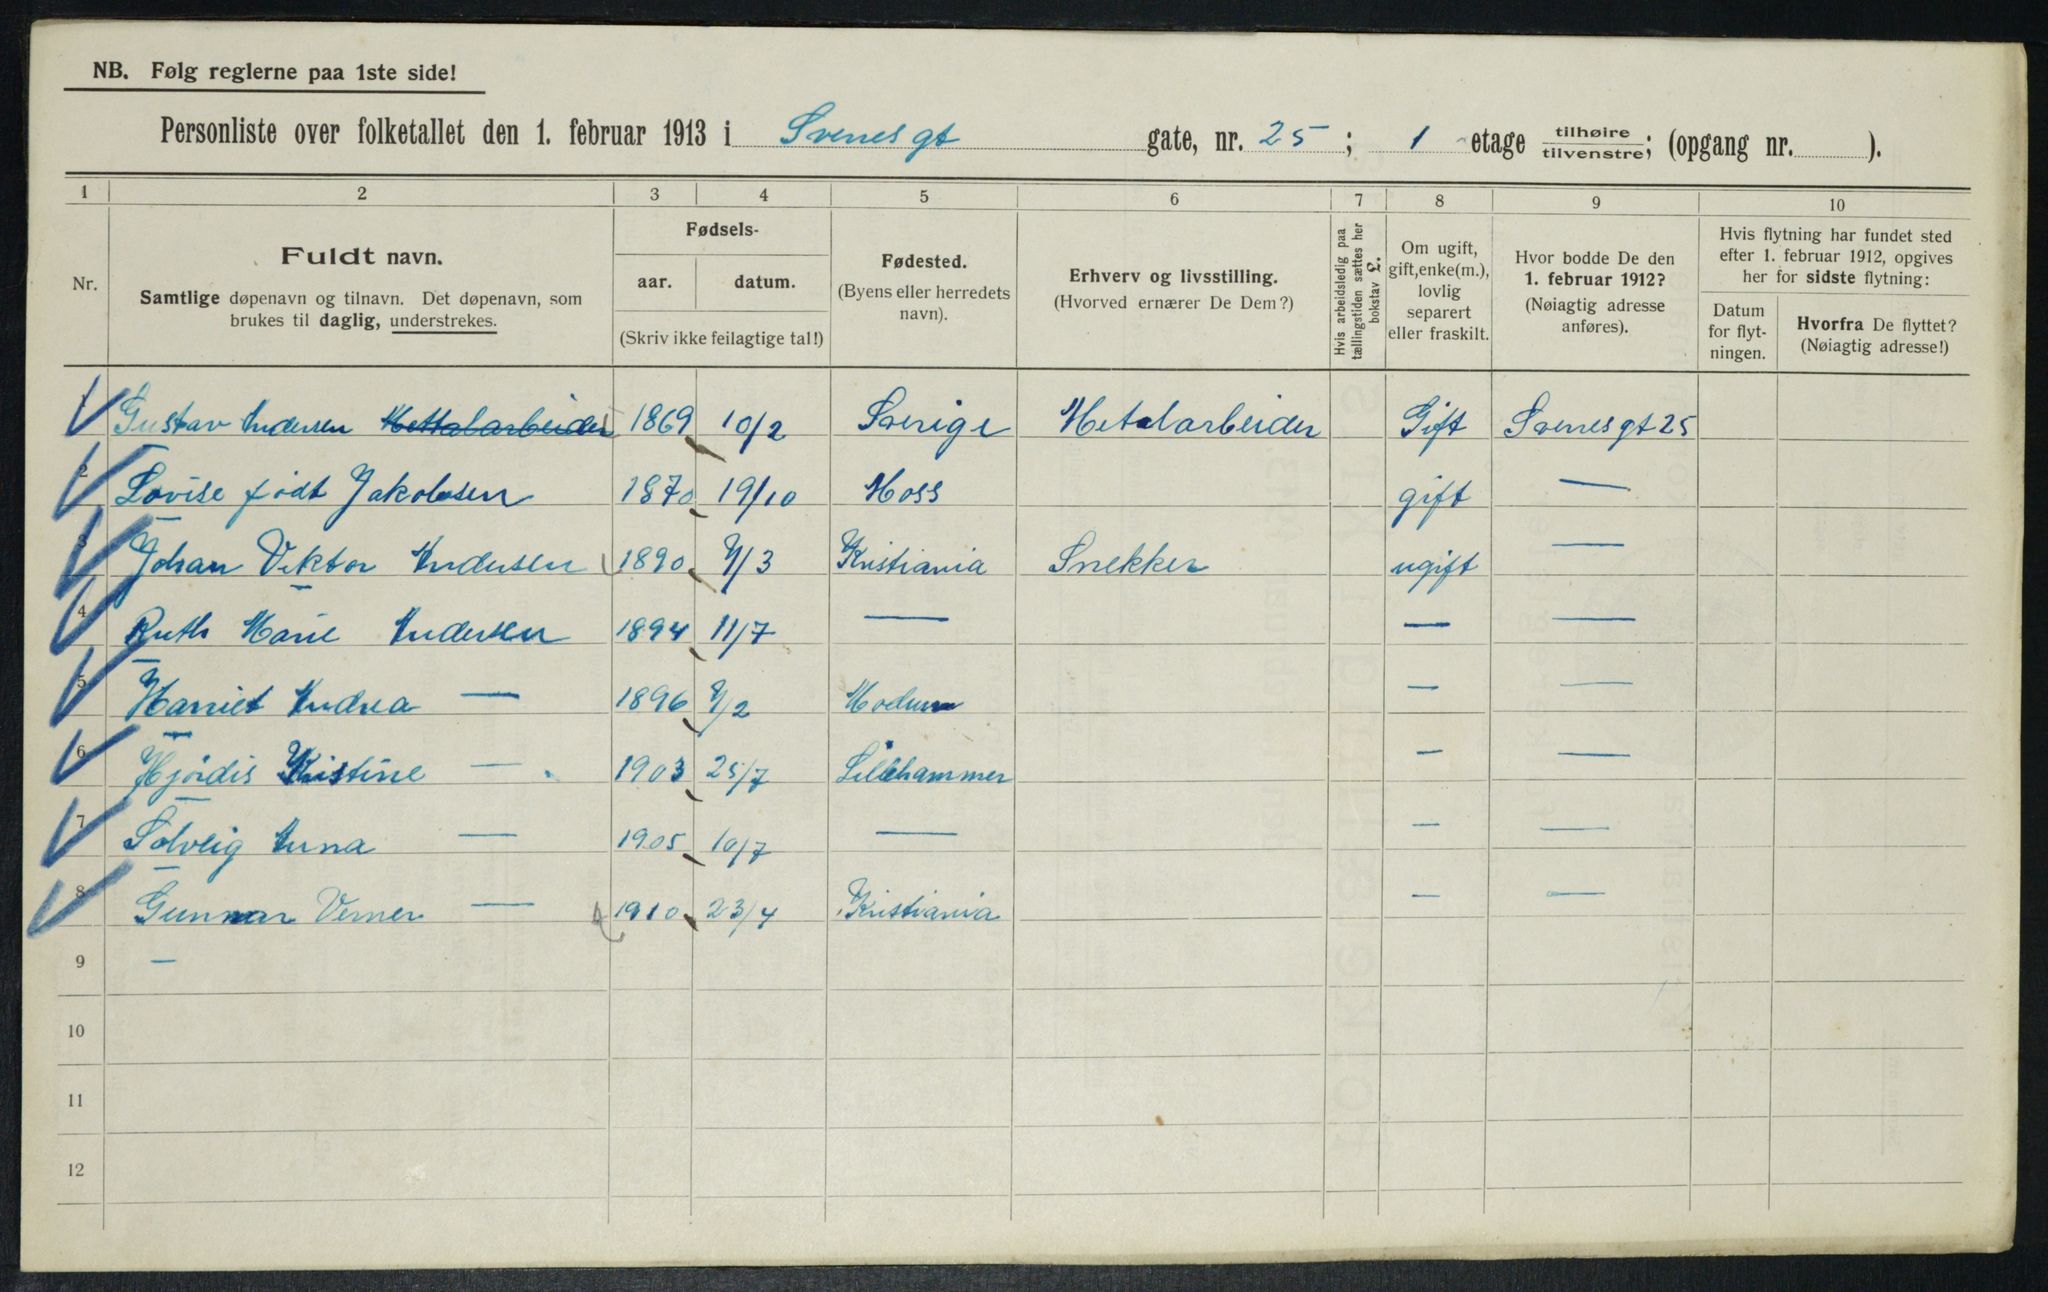 NB. Følg reglerne paa 1ste side!
Personliste over folketallet den 1. februar 1913 i Svenesgt gate, nr. 25; 1 etage tilhøire/tilvenstre; (opgang nr. ).
1 2 3 4 5 6 7 8 9 10
Nr.
Fuldt navn.
Samtlige døpenavn og tilnavn. Det døpenavn, som
brukes til daglig, understrekes.
Fødsels-
aar. datum.
(Skriv ikke feilagtige tal!)
Fødested.
(Byens eller herredets
navn).
Erhverv og livsstilling.
(Hvorved ernærer De Dem?)
Hvis arbeidsledig paa
tællingstiden sættes her
bokstav L.
Om ugift,
gift, enke(m.),
lovlig
separert
eller fraskilt.
Hvor bodde De den
1. februar 1912?
(Nøiagtig adresse
anføres).
Hvis flytning har fundet sted
efter 1. februar 1912, opgives
her for sidste flytning:
Datum
for flyt-
ningen.
Hvorfra De flyttet?
(Nøiagtig adresse!)
1 Gustav Andersen Mettalarbeider 1869 10/2 Sverige Metalarbeider Gift Svenesgt 25
2 Lovise født Jakobsen 1870 19/10 Moss gift —
3 Johan Viktor Andersen 1890 7/3 Kristiania Snekker ugift —
4 Ruth Marie Andersen 1894 11/7 — — —
5 Harriet Andrea — 1896 7/2 Modum — —
6 Hjördis Kristine — 1903 25/7 Lillehammer — —
7 Solveig Anna — 1905 10/7 — — —
8 Gunnar Verner — 1910 23/4 Kristiania — —
9 —
10
11
12